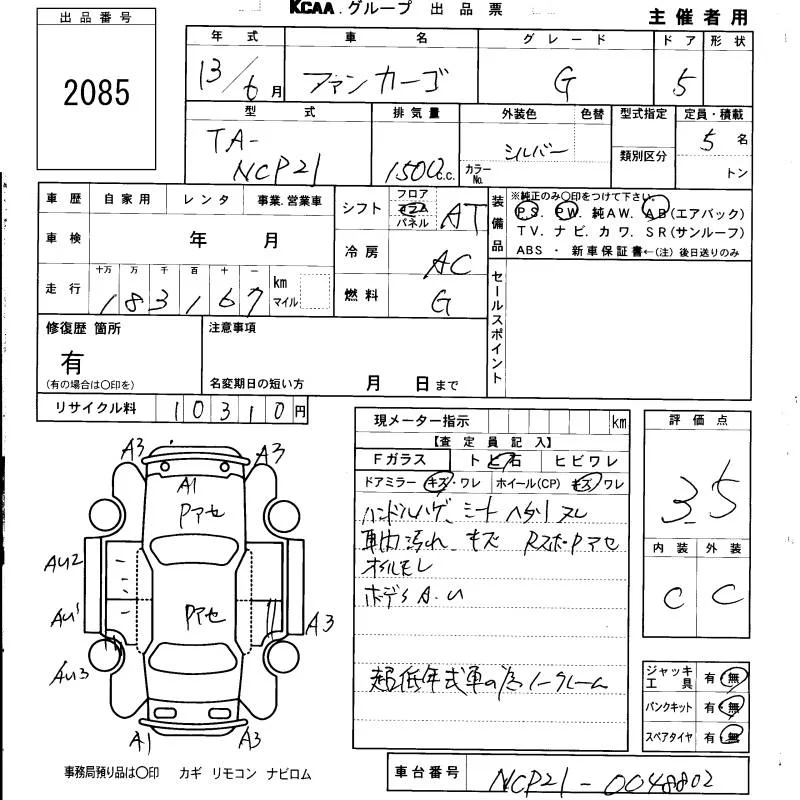 KCAA.グループ 出品票
主催者用
出品番号
2085
年式 車名 グレード ドア 形状
13/6月 ファンカーゴ G 5
型式 排気量 外装色 色替 型式指定 定員・積載
TA-NCP21 1500c.c. シルバー カラーNo. 類別区分 5名 トン
車歴 自家用 レンタ 事業.営業車
車検 年 月
走行 十万 万 千 百 十 一 km マイル
183167
シフト フロア コラム パネル AT
冷房 AC
燃料 G
装備品
※純正のみ〇印をつけて下さい。
P.S. P.W. 純AW. A.B(エアバック)
TV. ナビ. カワ. SR(サンルーフ)
ABS ・ 新車保証書←(注)後日送りのみ
セールスポイント
修復歴 箇所
有
(有の場合は〇印を)
注意事項
名変期日の短い方 月 日まで
リサイクル料 10310円
現メーター指示 km
【査定員記入】
Fガラス トビ石 ヒビワレ
ドアミラー キズ・ワレ ホイール(CP) キズ・ワレ
ハンドルハゲ、シートヘタリ スレ
車内汚れ キズ RスポPアセ
オイルモレ
ボデーA.U
超低年式車の為ノークレーム
評価点
3.5
内装 外装
C C
ジャッキ工具 有・無
パンクキット 有・無
スペアタイヤ 有・無
A3 A3
A1
Pアセ
AU2
AU1
Pアセ
A3
AU3
A1 A3
事務局預り品は〇印 カギ リモコン ナビロム
車台番号 NCP21-0048802